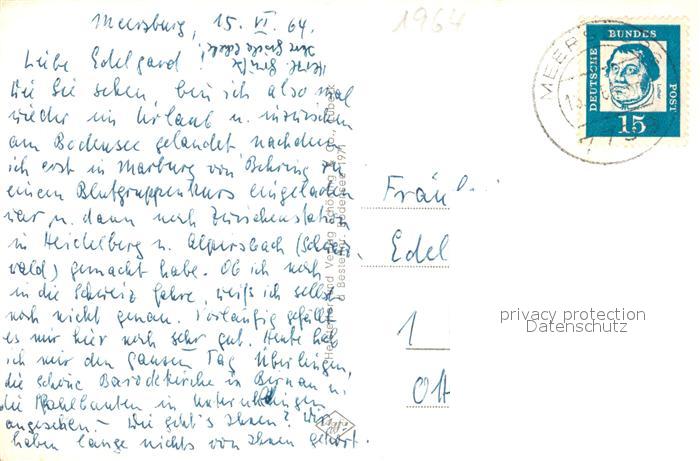 Meersburg, 15. VI. 64.
1964
Liebe Edelgard!
Herzl. Grüße
Ihre
Wie Sie sehen, bin ich also mal
wieder im Urlaub u. inzwischen
am Bodensee gelandet nachdem
ich erst in Marburg von Behring zu
einem Blutgruppenkurs eingeladen
war u. dann noch Zwischenstation
in Heidelberg u. Alpirsbach (Schwarz-
wald) gemacht habe. Ob ich noch
in die Schweiz fahre, weiß ich selbst
noch nicht genau. Vorläufig gefällt
es mir hier noch sehr gut. Heute hab
ich mir den ganzen Tag Überlingen,
die schöne Barockkirche in Birnau u.
die Pfahlbauten in Unteruhldingen
angesehen. – Wie geht's Ihnen? Wir
haben lange nichts von Ihnen gehört.
Verlag Schöning & Co., Lübeck
Bestellnr. Bodensee 1971
DEUTSCHE BUNDES POST
15
MEERS
Fräul
Edel
1
Ott
privacy protection
Datenschutz